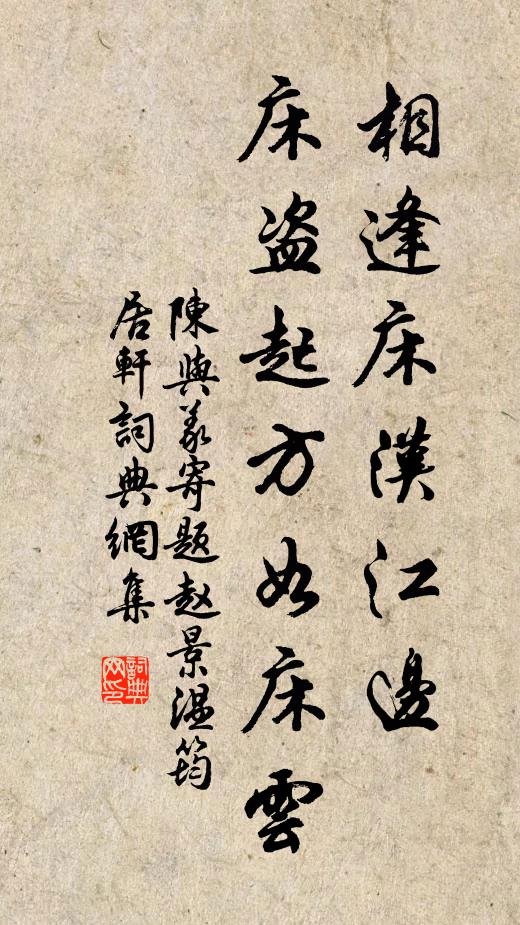 相逢床漢江邊
床盗起方如床雲
陳與義寄題趙景溫筠
居軒詞典網集
詞典
网印